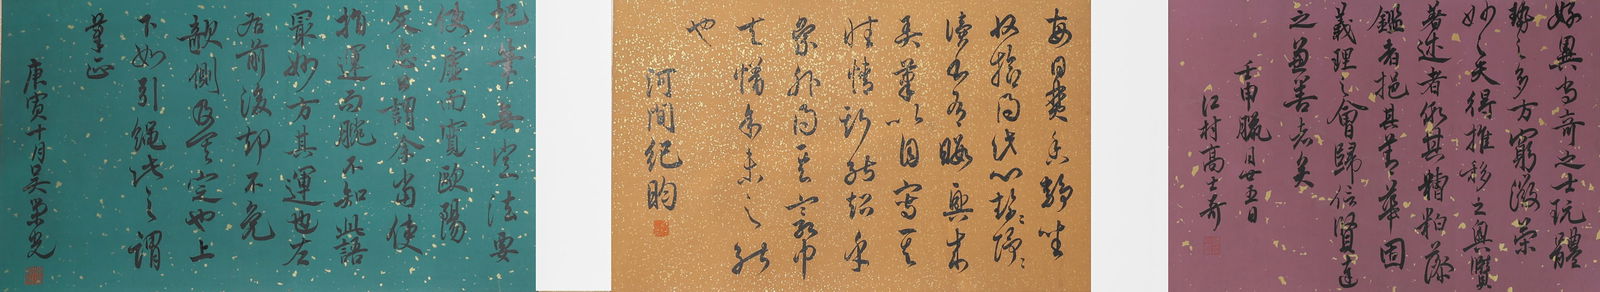 好異尚奇之士玩體
勢之多方窮微
妙之夫得推移之奧賾
著述者假其糟粕藻
鑑者挹其菁華固
義理之會歸信賢達
之兼善者矣
壬申臘月廿五日
江村高士奇
每日焚香靜坐
收拾得此心
讀書有暇興來
弄筆以自寫其
性情斯能超乎
象外得其寰中
夫惜未之能
也
河間紀昀
把筆無定法要
使虛而寬歐陽
文忠曰謂余當使
指運而腕不知此語
最妙方其運也左
右前後却不免
欹側及其定也上
下如引繩此之謂
筆正
庚寅十月吳榮光